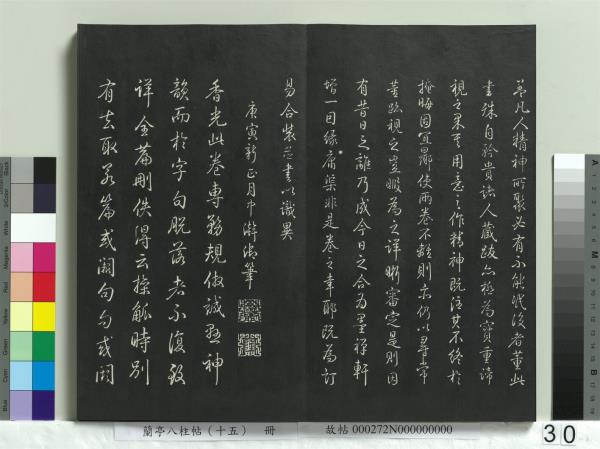 凡人精神所聚必有不能泯沒者董此
書殊自矜賞諸人藏跋亦極為寶重諦
視之果其用意之作精神既洽其不終於
掩晦固宜鄉使兩卷不離則亦仍以尋常
董跡視之豈暇為之詳晰審定是則因
有昔日之離乃成今日之合為墨禪軒
增一因緣庸渠非是卷之幸耶既為訂
易合裝並書以識異
庚寅新正月中澣御筆
香光此卷專務規倣誠懸神
韻而於字句脫落者不復致
詳全篇刪佚得云操觚時別
有去取若篇或闕句句或闕
蘭亭八柱帖（十五） 冊
故帖 000272N000000000
30